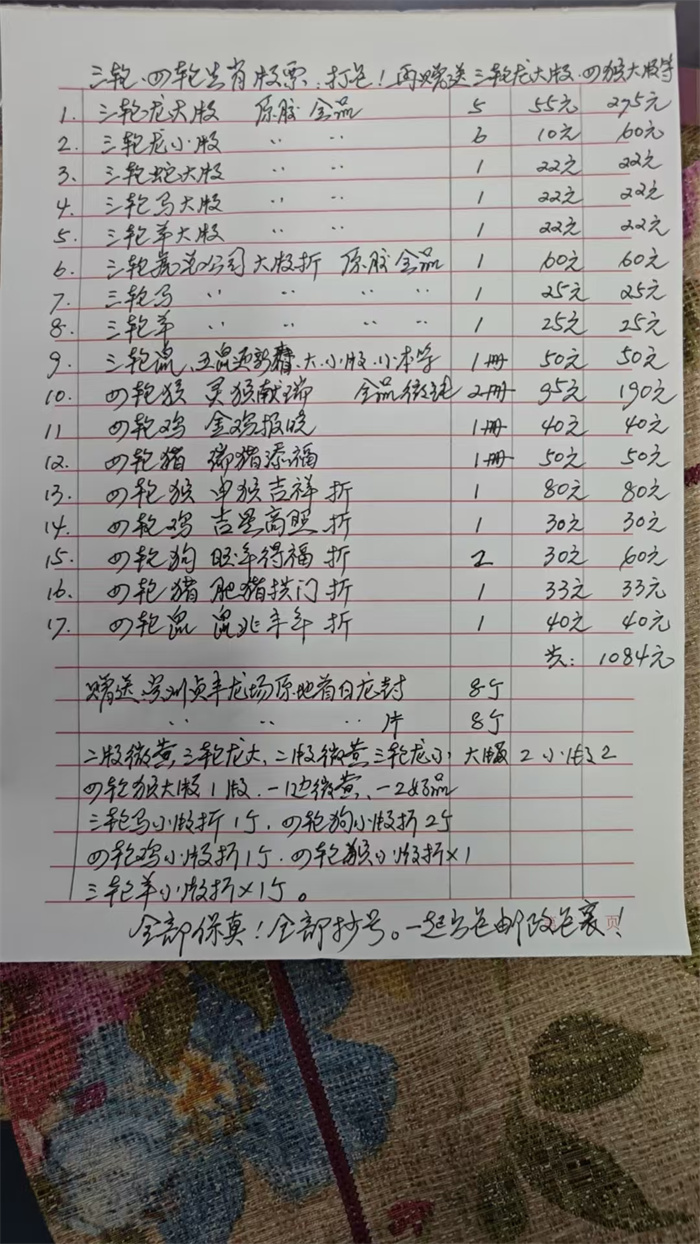 三轮.四轮生肖版票:打包!再赠送三轮龙大版.四猴大版等
1. 三轮龙大版 原胶全品 5 55元 275元
2. 三轮龙小版 〃 〃 6 10元 60元
3. 三轮蛇大版 〃 〃 1 22元 22元
4. 三轮马大版 〃 〃 1 22元 22元
5. 三轮羊大版 〃 〃 1 22元 22元
6. 三轮龙总公司大版折 原胶全品 1 60元 60元
7. 三轮马 〃 〃 〃 〃 1 25元 25元
8. 三轮羊 〃 〃 〃 1 25元 25元
9. 三轮鼠.玉鼠迎新春.大.小版.小本等 1册 50元 50元
10. 四轮猴 灵猴献瑞 全品微 2册 95元 190元
11 四轮鸡 金鸡报晓 1册 40元 40元
12. 四轮猪 瑞猪添福 1册 50元 50元
13. 四轮猴 申猴吉祥 折 1 80元 80元
14. 四轮鸡 吉星高照 折 1 30元 30元
15. 四轮狗 旺年得福 折 2 30元 60元
16. 四轮猪 肥猪拱门 折 1 33元 33元
17. 四轮鼠 鼠兆丰年 折 1 40元 40元
共: 1084元
赠送.贵州贞丰龙场原地首日龙封 8个
〃 〃 〃 片 8个
二版微黄三轮龙大,二版微黄三轮龙小,大版2 小版2
四轮猴大版1版.一边微黄,一边好品
三轮马小版折1个.四轮狗小版折2个
四轮鸡小版折1个.四轮猴小版折×1
三轮羊小版折×1个。
全部保真!全部抄号。一起包邮政包裹!
页